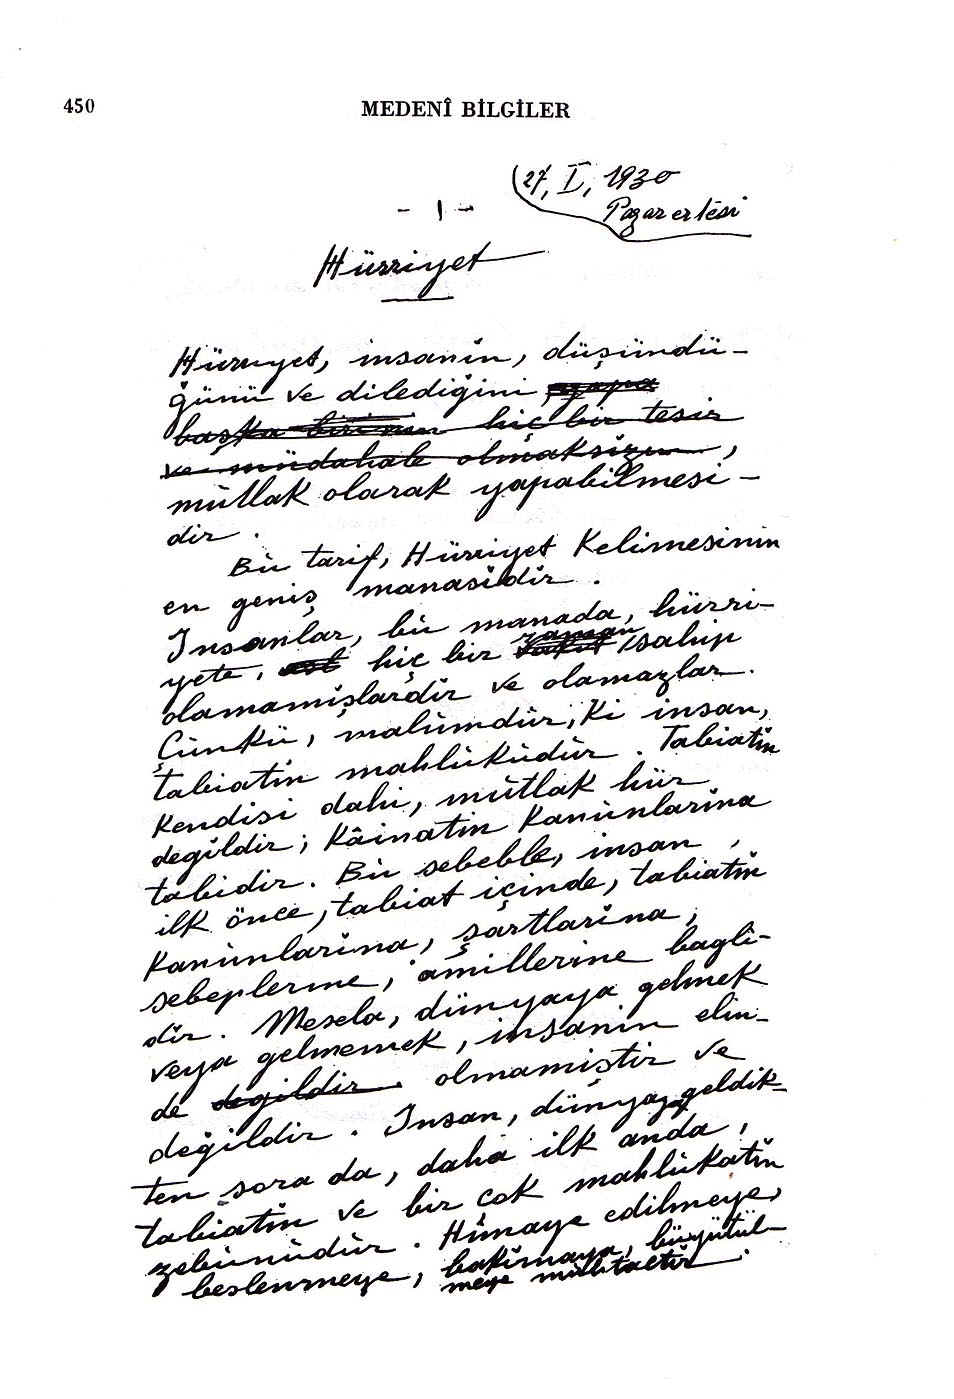 450
MEDENÎ BİLGİLER
27, I, 1930
Pazarertesi
- 1 -
Hürriyet
Hürriyet, insanın, düşündü-
ğünü ve dilediğini
başka birinin hiç bir tesir
ve müdahale olmaksızın,
mutlak olarak yapabilmesi-
dir.
Bu tarif, Hürriyet Kelimesinin
en geniş manasıdır.
İnsanlar, bu manada, hürri-
yete, hiç bir zaman sahip
olamamışlardır ve olamazlar.
Çünkü, malûmdur, ki insan,
tabiatın mahlûkudur. Tabiatın
Kendisi dahi, mutlak hür
değildir; Kâinatın Kanunlarına
tabidir. Bu sebeble, insan,
ilk önce, tabiat içinde, tabiatın
Kanunlarına, şartlarına,
sebeplerine, amillerine bağlı-
dır. Mesela, dünyaya gelmek
veya gelmemek, insanın elin-
de değildir. olmamıştır ve
değildir. İnsan, dünyaya geldik-
ten sora da, daha ilk anda,
tabiatın ve bir çok mahlûkatın
zebunudur. Himaye edilmeye,
beslenmeye, bakılmaya, büyütül-
meye muhtactır.